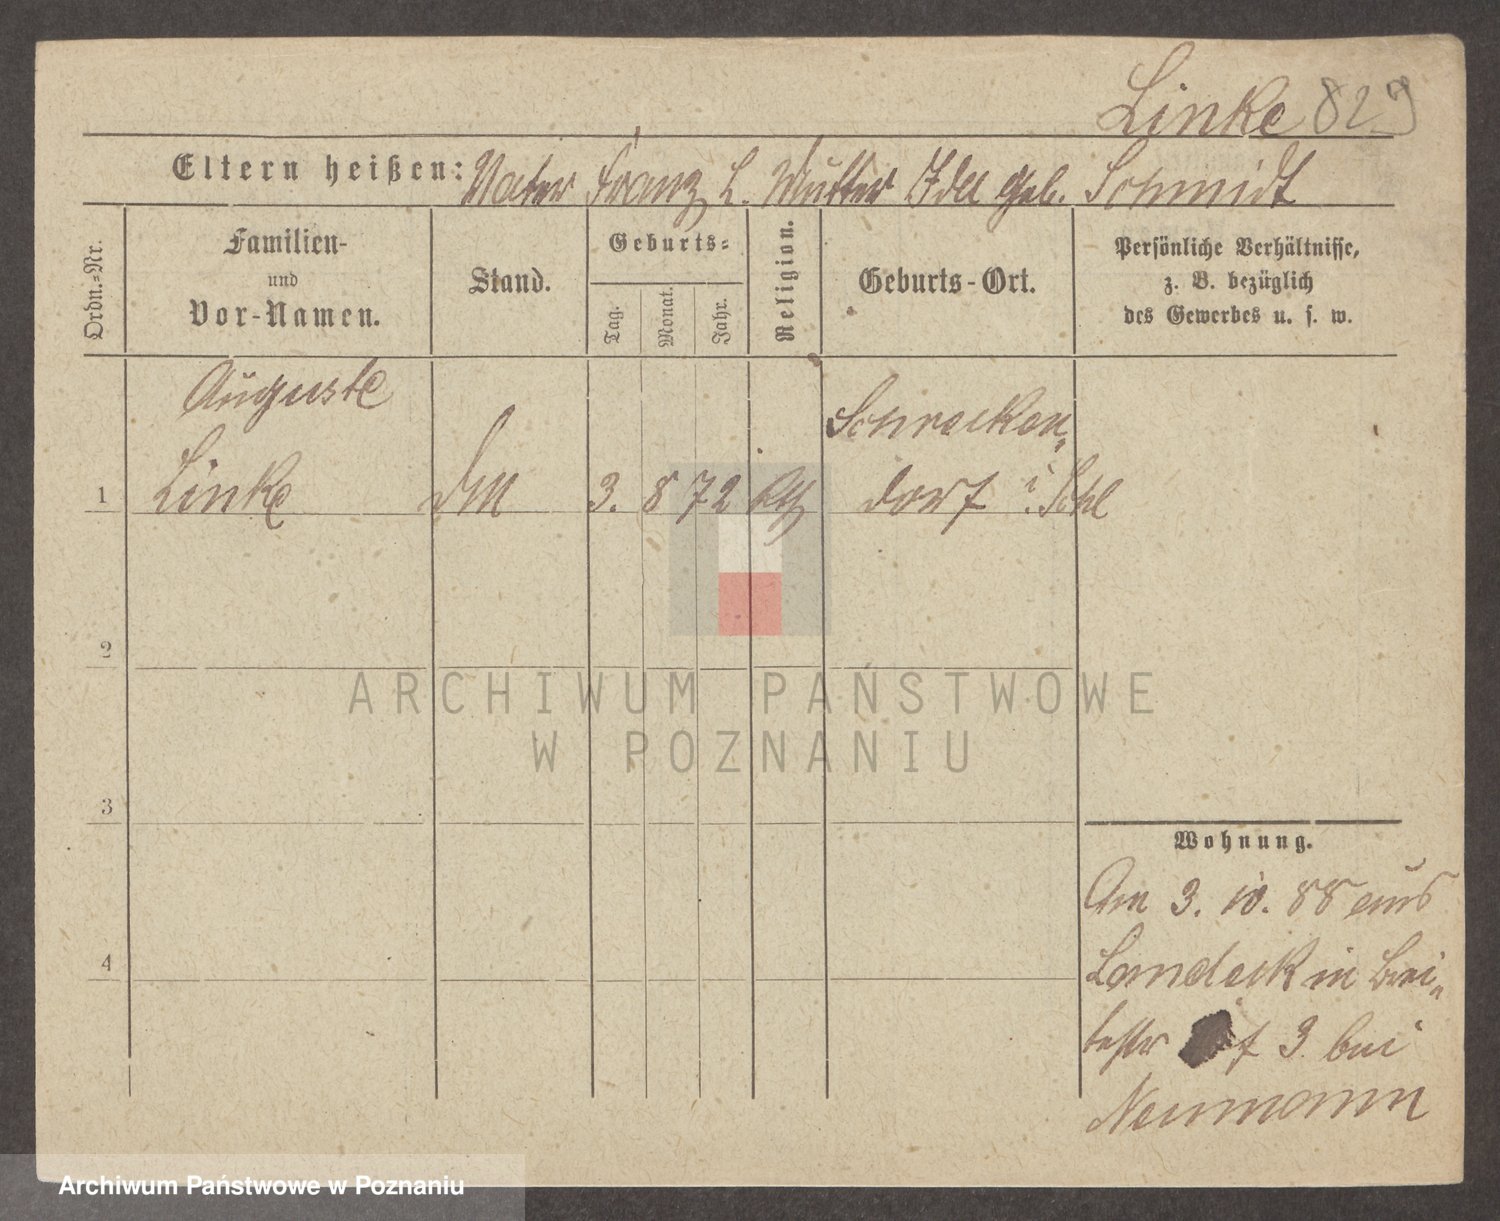 Linke 829
Eltern heißen: Vater Franz L. Mutter Ida geb. Schmidt
Ordn.-Nr.
Familien-
und
Vor-Namen.
Stand.
Geburts-
Tag.
Monat.
Jahr.
Religion.
Geburts-Ort.
Persönliche Verhältnisse,
z. B. bezüglich
des Gewerbes u. s. w.
Auguste
1 Linke 3. 8 72 kth
Schrecken-
dorf i. Schl
2
3
4
Wohnung.
Am 3. 10. 88 aus
Landeck in Brei-
testr 3 bei
Neumann
ARCHIWUM PAŃSTWOWE
W POZNANIU
Archiwum Państwowe w Poznaniu